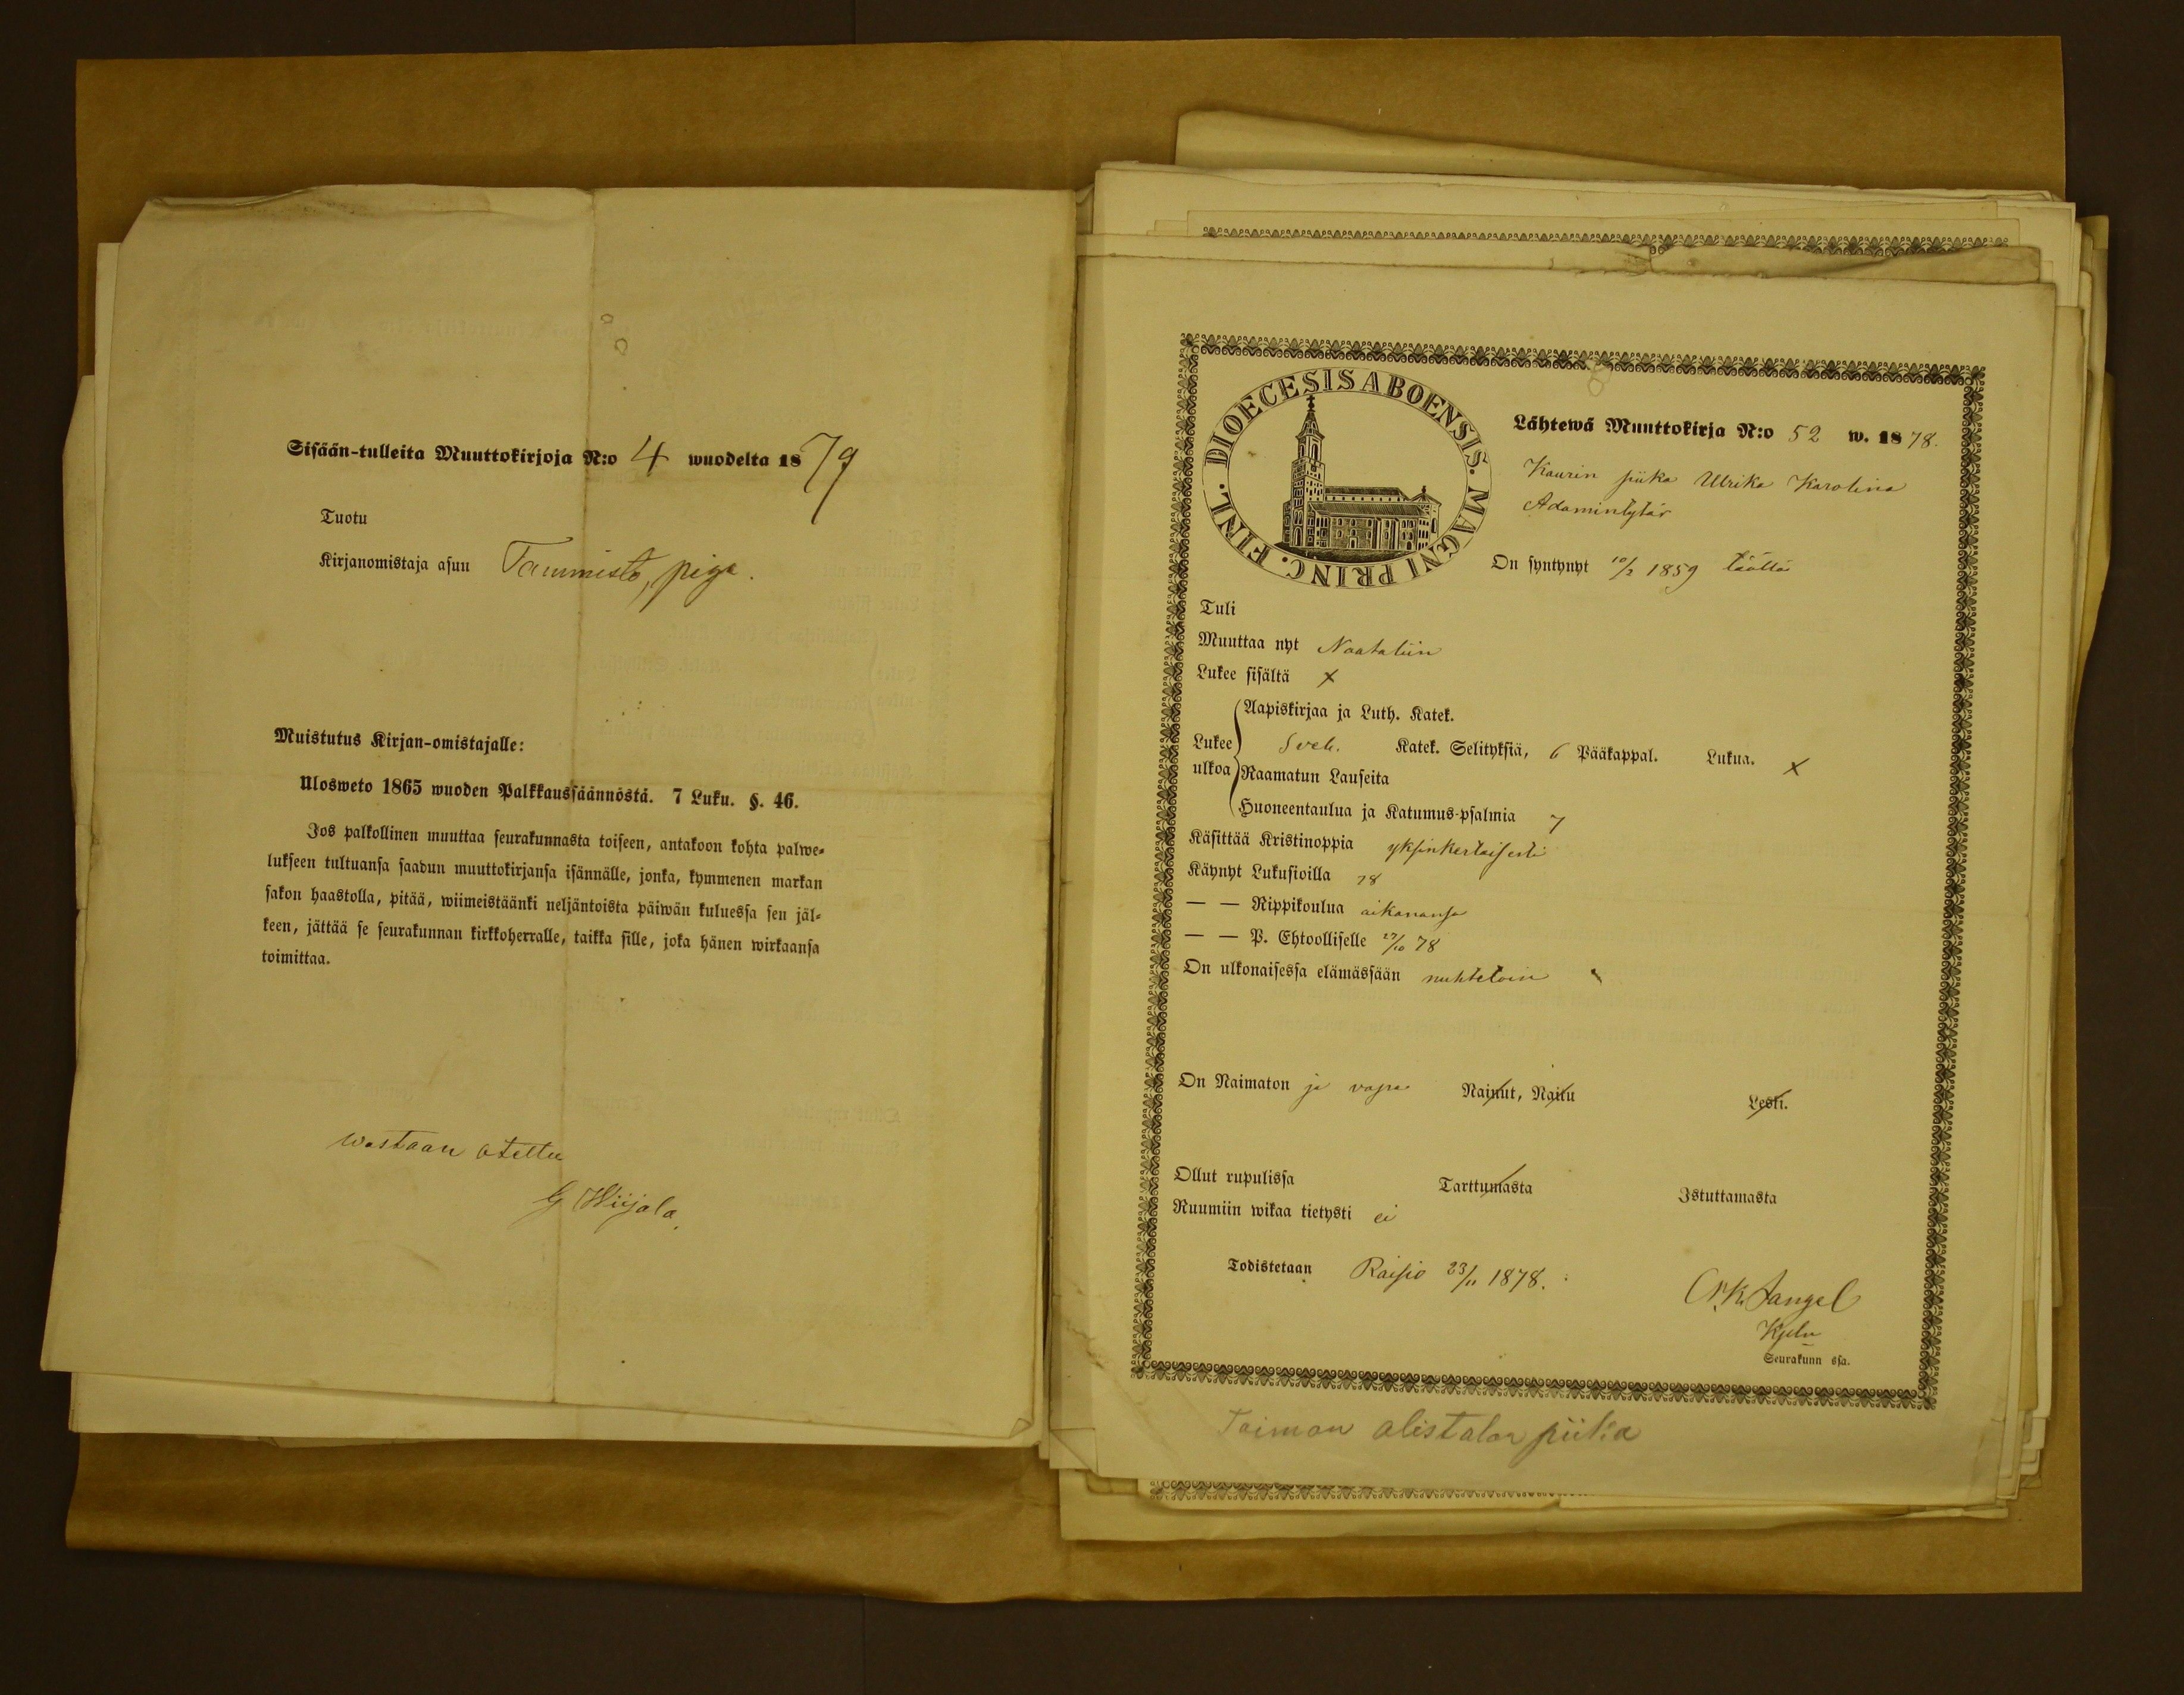 Sisään-tulleita Muuttokirjoja N:o 4 wuodelta 1879
Tuotu
Kirjanomistaja asuu Tammisto, piga.
Muistutus Kirjan-omistajalle:
Ulosweto 1865 wuoden Palkkaussäännöstä. 7 Luku. §. 46.
Jos palkollinen muuttaa seurakunnasta toiseen, antakoon kohta palwe-
lukseen tultuansa saadun muuttokirjansa isännälle, jonka, kymmenen markan
sakon haastolla, pitää, wiimeistäänki neljäntoista päiwän kuluessa sen jäl-
keen, jättää se seurakunnan kirkkoherralle, taikka sille, joka hänen wirkaansa
toimittaa.
wastaan otettu
G Wiijala.
DIOECESIS ABOENSIS. MAGNI PRINC. FINL.
Lähtewä Muuttokirja N:o 52 w. 1878.
Kaurin piika Ulrika Karolina
Adamintytär
On syntynyt 10/2 1859 täällä
Tuli
Muuttaa nyt Naataliin
Lukee sisältä x
Aapiskirjaa ja Luth. Katek.
Lukee ulkoa Sveb. Katek. Selityksiä, 6 Pääkappal. Lukua. x
Raamatun Lauseita
Huoneentaulua ja Katumus-psalmia 7
Käsittää Kristinoppia yksinkertaisesti
Käynyt Lukusioilla 78
— — Rippikoulua aikanansa
— — P. Ehtoolliselle 27/10 78
On ulkonaisessa elämässään nuhteloin
On Naimaton ja vapaa Nainut, Naitu Leski.
Ollut rupulissa Tarttumasta Istuttamasta
Ruumiin wikaa tietysti ei
Todistetaan Raisio 23/11 1878.
Tangel
Seurakunn ssa.
Taimon alistalon piika